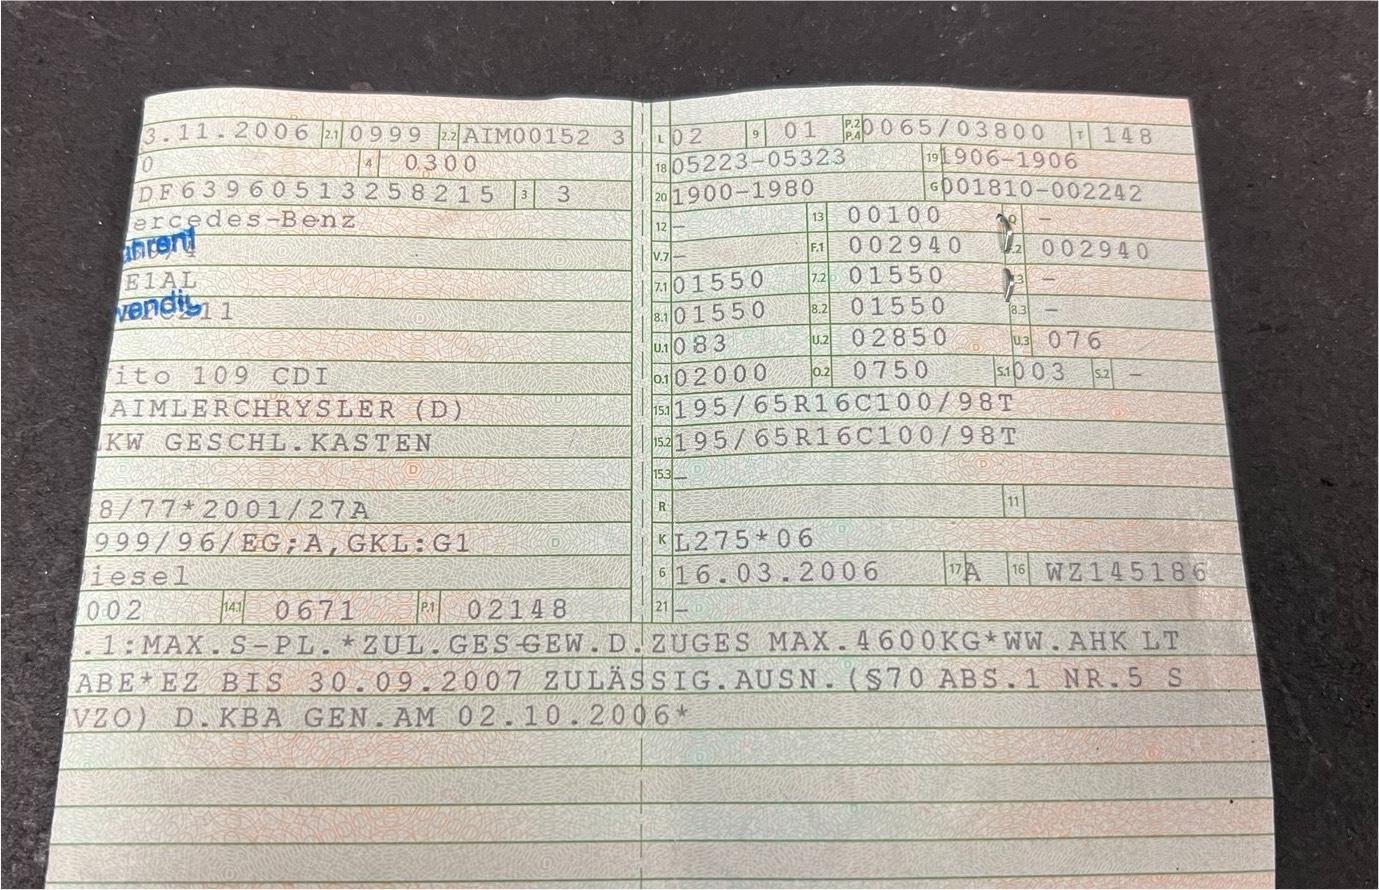 3.11.2006 2.1 0999 2.2 AIM00152 3 L 02 9 01 P.2 P.4 0065/03800 T 148
0 4 0300 18 05223-05323 19 1906-1906
DF63960513258215 3 3 20 1900-1980 G 001810-002242
ercedes-Benz 12 – 13 00100 Q –
V.7 – F.1 002940 F.2 002940
E1AL 7.1 01550 7.2 01550 7.3 –
211 8.1 01550 8.2 01550 8.3 –
U.1 083 U.2 02850 U.3 076
ito 109 CDI O.1 02000 O.2 0750 S.1 003 S.2 –
AIMLERCHRYSLER (D) 15.1 195/65R16C100/98T
KW GESCHL.KASTEN 15.2 195/65R16C100/98T
15.3 –
8/77*2001/27A R 11
999/96/EG;A,GKL:G1 K L275*06
iesel 6 16.03.2006 17 A 16 WZ145186
002 14.1 0671 P.1 02148 21 –
.1:MAX.S-PL.*ZUL.GES-GEW.D.ZUGES MAX.4600KG*WW.AHK LT
ABE*EZ BIS 30.09.2007 ZULÄSSIG.AUSN.(§70 ABS.1 NR.5 S
VZO) D.KBA GEN.AM 02.10.2006*